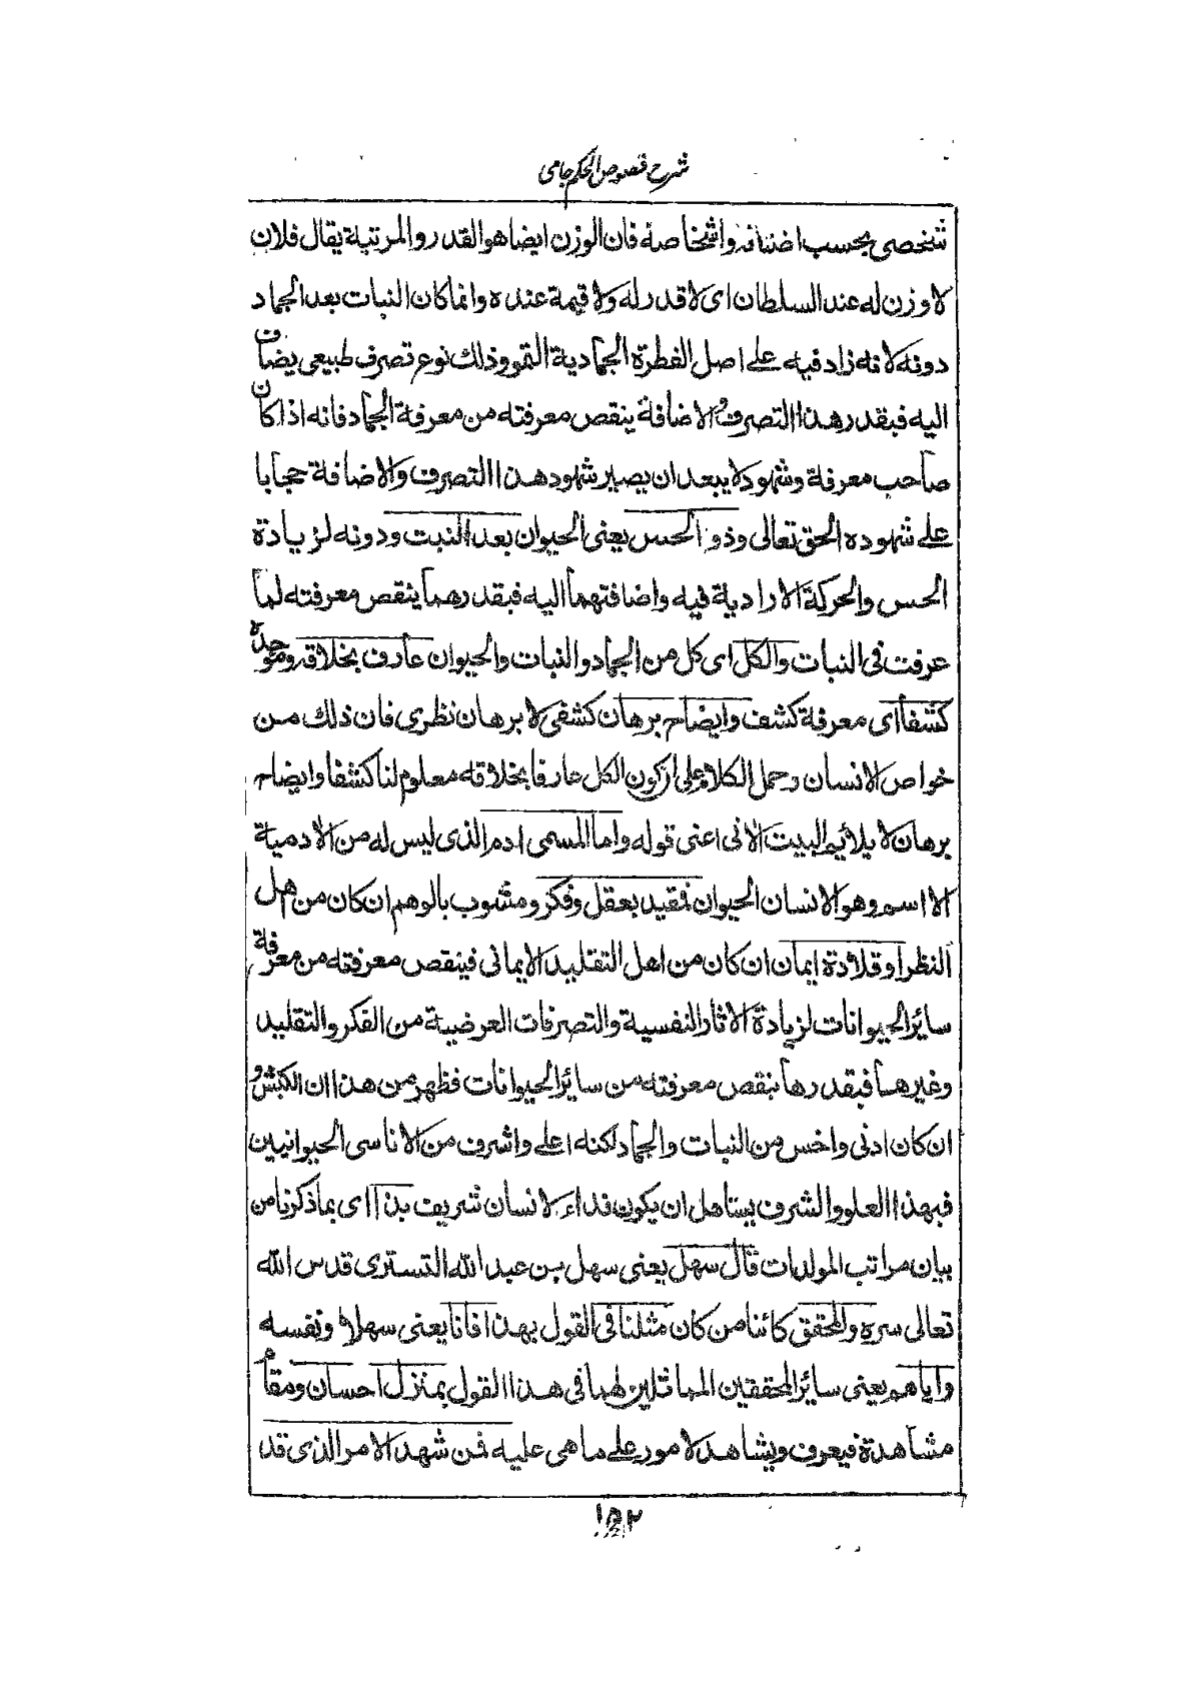 شرح فصوص الحكم جامى
شخصى بحسب اضافه واشخاصه فان الوزن ايضا هو القدر والمرتبة يقال فلان
لا وزن له عند السلطان اى لا قدر له ولا قيمة عنده وانما كان النبات بعد الجماد
دونه لانه زاد فيه على اصل الفطرة الجمادية النمو وذلك نوع تصرف طبيعى يضاف
اليه فبقدر هذا التصرف والاضافة ينقص معرفته من معرفة الجماد فانه اذا كان
صاحب معرفة وشهود لا يبعد ان يصير شهود هذا التصرف والاضافة حجابا
على شهوده الحق تعالى وذو الحس يعنى الحيوان بعد النبت ودونه لزيادة
الحس والحركة الارادية فيه واضافتهما اليه فبقدرهما ينقص معرفته لما
عرفت فى النبات والكل اى كل من الجماد والنبات والحيوان عارف بخلاقه وموجده
كشفا اى معرفة كشف وايضاح برهان كشفى لا برهان نظرى فان ذلك من
خواص الانسان وحمل الكلام على ان كون الكل عارفا بخلاقه معلوم لنا كشفا وايضاح
برهان لا يلائيم البيت الاتى اعنى قوله واما المسمى ادم الذى ليس له من الادمية
الا اسم وهو الانسان الحيوان فمقيد بعقل وفكر ومشوب بالوهم ان كان من اهل
النظر او قلادة ايمان ان كان من اهل التقليد الايمانى فينقص معرفته من معرفة
سائر الحيوانات لزيادة الاثار النفسية والتصرفات العرضية من الفكر والتقليد
وغيرها فبقدرها ينقص معرفته من سائر الحيوانات فظهر من هذا ان الكبش و
ان كان ادنى واخس من النبات والجماد لكنه اعلى واشرف من الاناسى الحيوانيين
فبهذا العلو والشرف يستاهل ان يكون فداء لانسان شريف بذا اى بما ذكرنا من
بيان مراتب المولدات قال سهل يعنى سهل بن عبد الله التسترى قدس الله
تعالى سره والمحقق كائنا من كان مثلنا فى القول بهذا فانا يعنى سهلا ونفسه
واياهم يعنى سائر المحققين المماثلين لهما فى هذا القول بمنزل احسان ومقام
مشاهدة فيعرف ويشاهد لامور على ما هى عليه فمن شهد الامر الذى قد
١٥٢